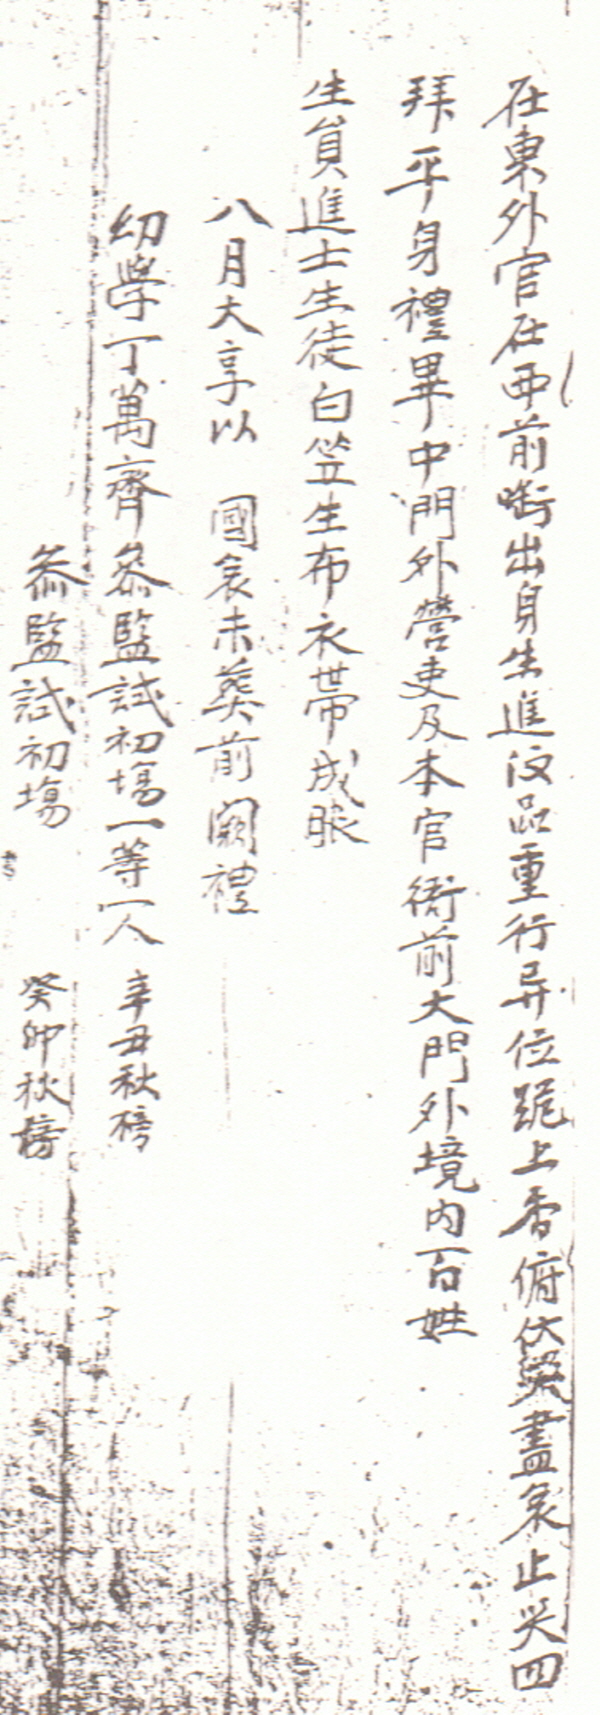 在東外官在西前啣出身生進汶品重行异位跪上香俯伏哭盡哀止哭四
拜平身禮畢中門外營吏及本官衙前大門外境內百姓
生員進士生徒白笠生布衣帶成服
八月大享以 國哀未葬前 闕禮
幼學丁萬齊參監試初場一等一人 辛丑秋榜
參監試初場 癸卯秋榜